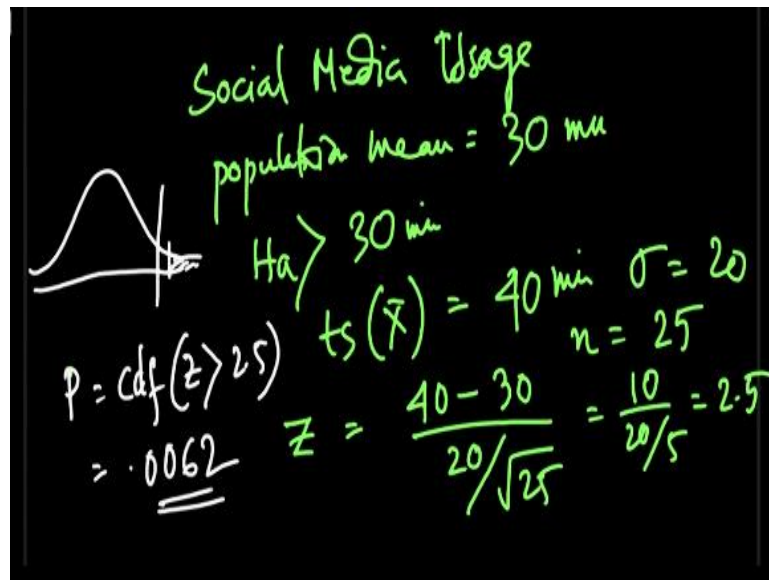 Social Media Usage
population mean = 30 min
Ha > 30 min
ts (x̄) = 40 min σ = 20
n = 25
Z = 40 - 30 / 20/√25 = 10 / 20/5 = 2.5
P = cdf (Z > 25)
= .0062